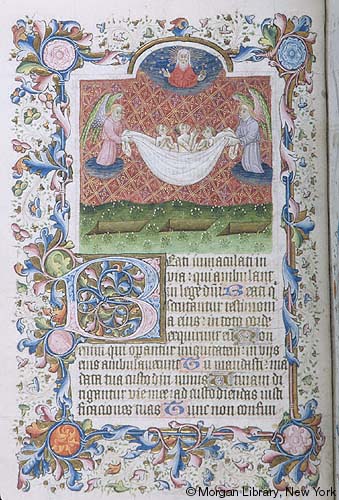 Beati immaculati in
via : qui ambulant
in lege dñi Beati q
scrutantur testimoni
a eius : in toto corde
exquirunt eū Non
enim qui operantur iniquitatem : in viis
eius ambulaverunt Tu mandasti : mā
data tua custodiri nimis Utinam di
rigantur vie mee : ad custodiendas iusti
ficacōes tuas Tunc non confun
© Morgan Library, New York